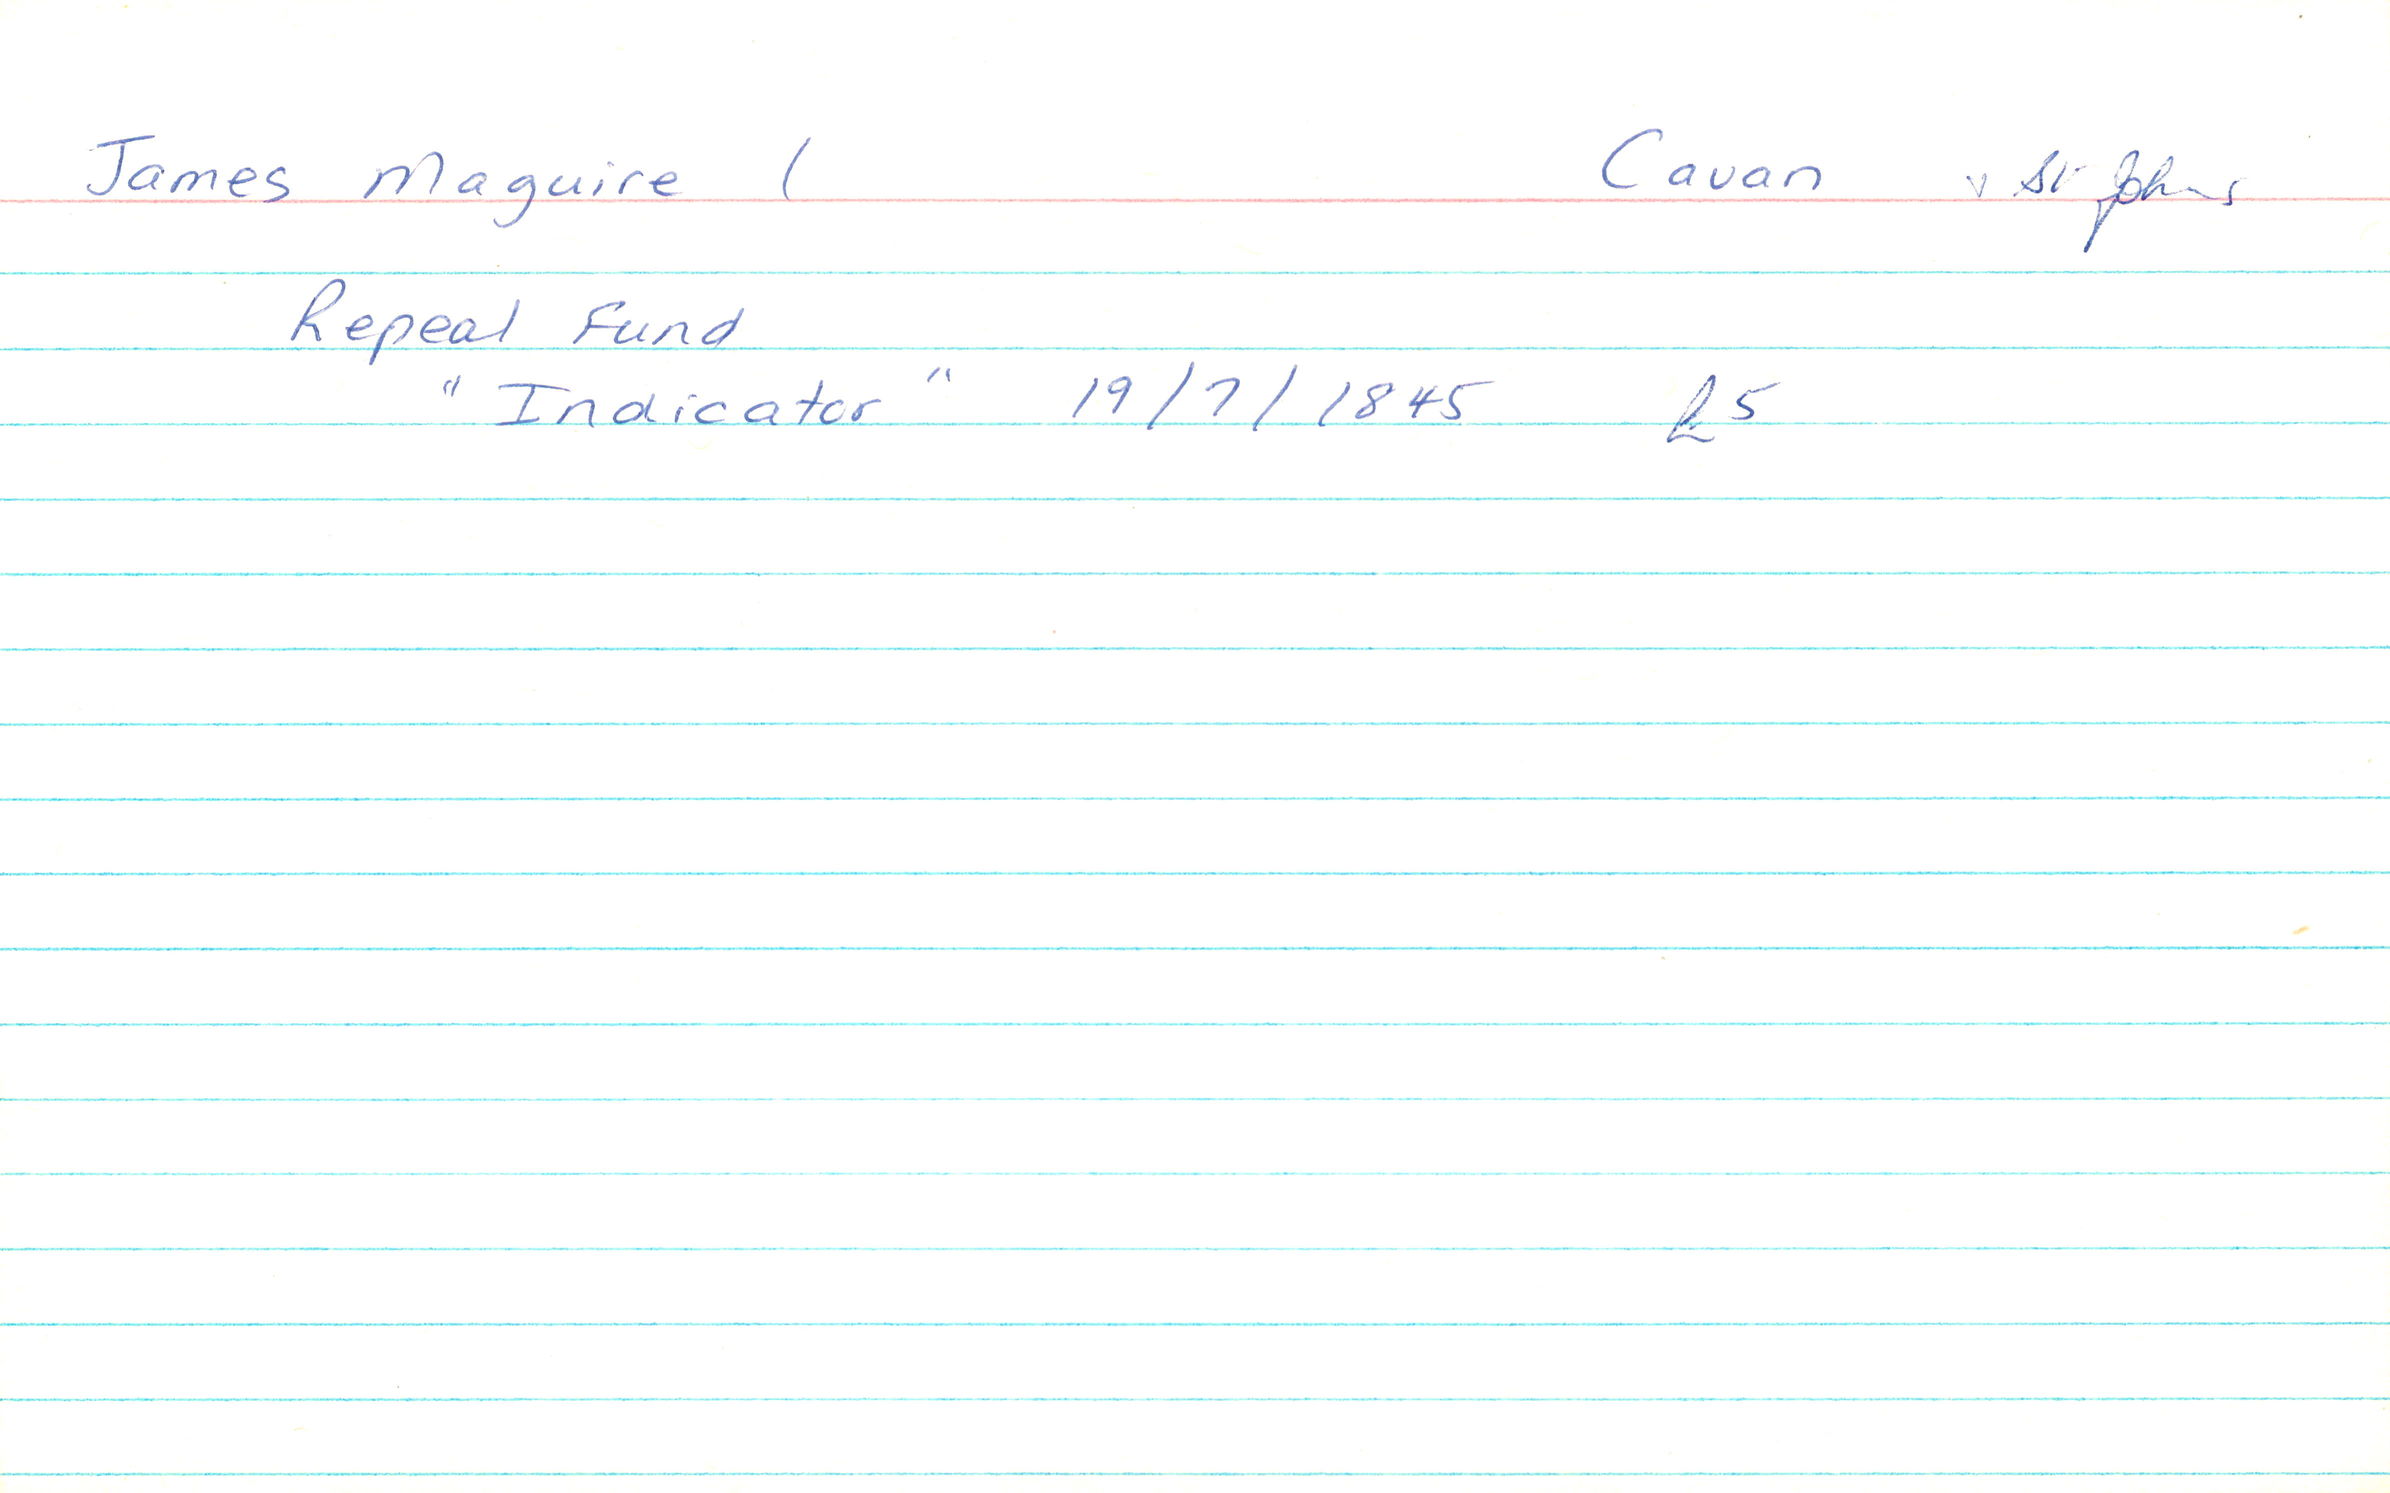 James Maguire ( Cavan v St Johns
Repeal Fund
"Indicator" 19/7/1845 £5